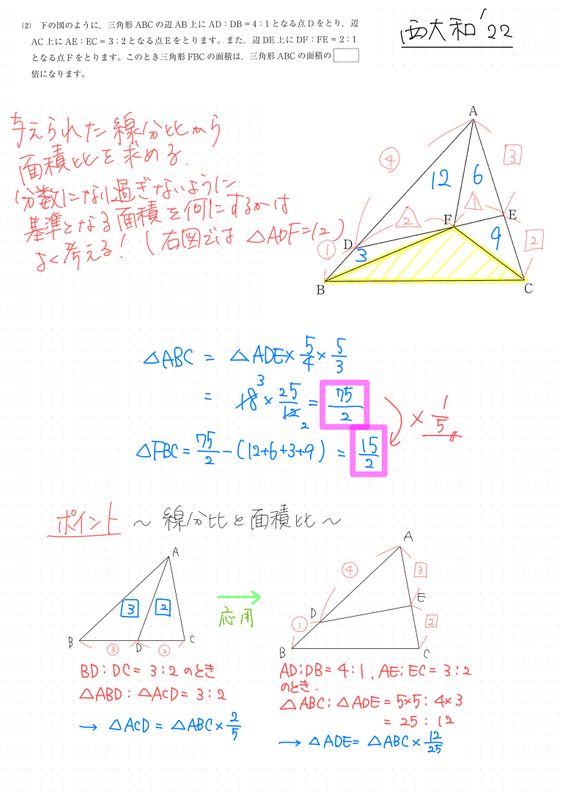 (2) 下の図のように，三角形ABCの辺AB上にAD：DB＝4：1となる点Dをとり，辺
AC上にAE：EC＝3：2となる点Eをとります。また，辺DE上にDF：FE＝2：1
となる点Fをとります。このとき三角形FBCの面積は，三角形ABCの面積の
倍になります。
西大和'22
与えられた線分比から
面積比を求める.
(分数)になり過ぎないように
基準となる面積を何にするかは
よく考える! (右図では △ADF=12)
A
④
3
12
6
2
1
F
E
D
①
3
9
2
B
C
△ABC = △ADE×5/4×5/3
= 18 3 × 25/12 2 = 75/2
× 1/5
△FBC = 75/2 - (12+6+3+9) = 15/2
ポイント ～ 線分比と面積比 ～
A
3
2
B
D
C
③
②
応用
A
④
3
D
E
①
2
B
C
BD:DC = 3:2 のとき
△ABD : △ACD = 3:2
→ △ACD = △ABC×2/5
AD:DB = 4:1, AE:EC = 3:2
のとき.
△ABC : △ADE = 5×5 : 4×3
= 25 : 12
→ △ADE = △ABC×12/25